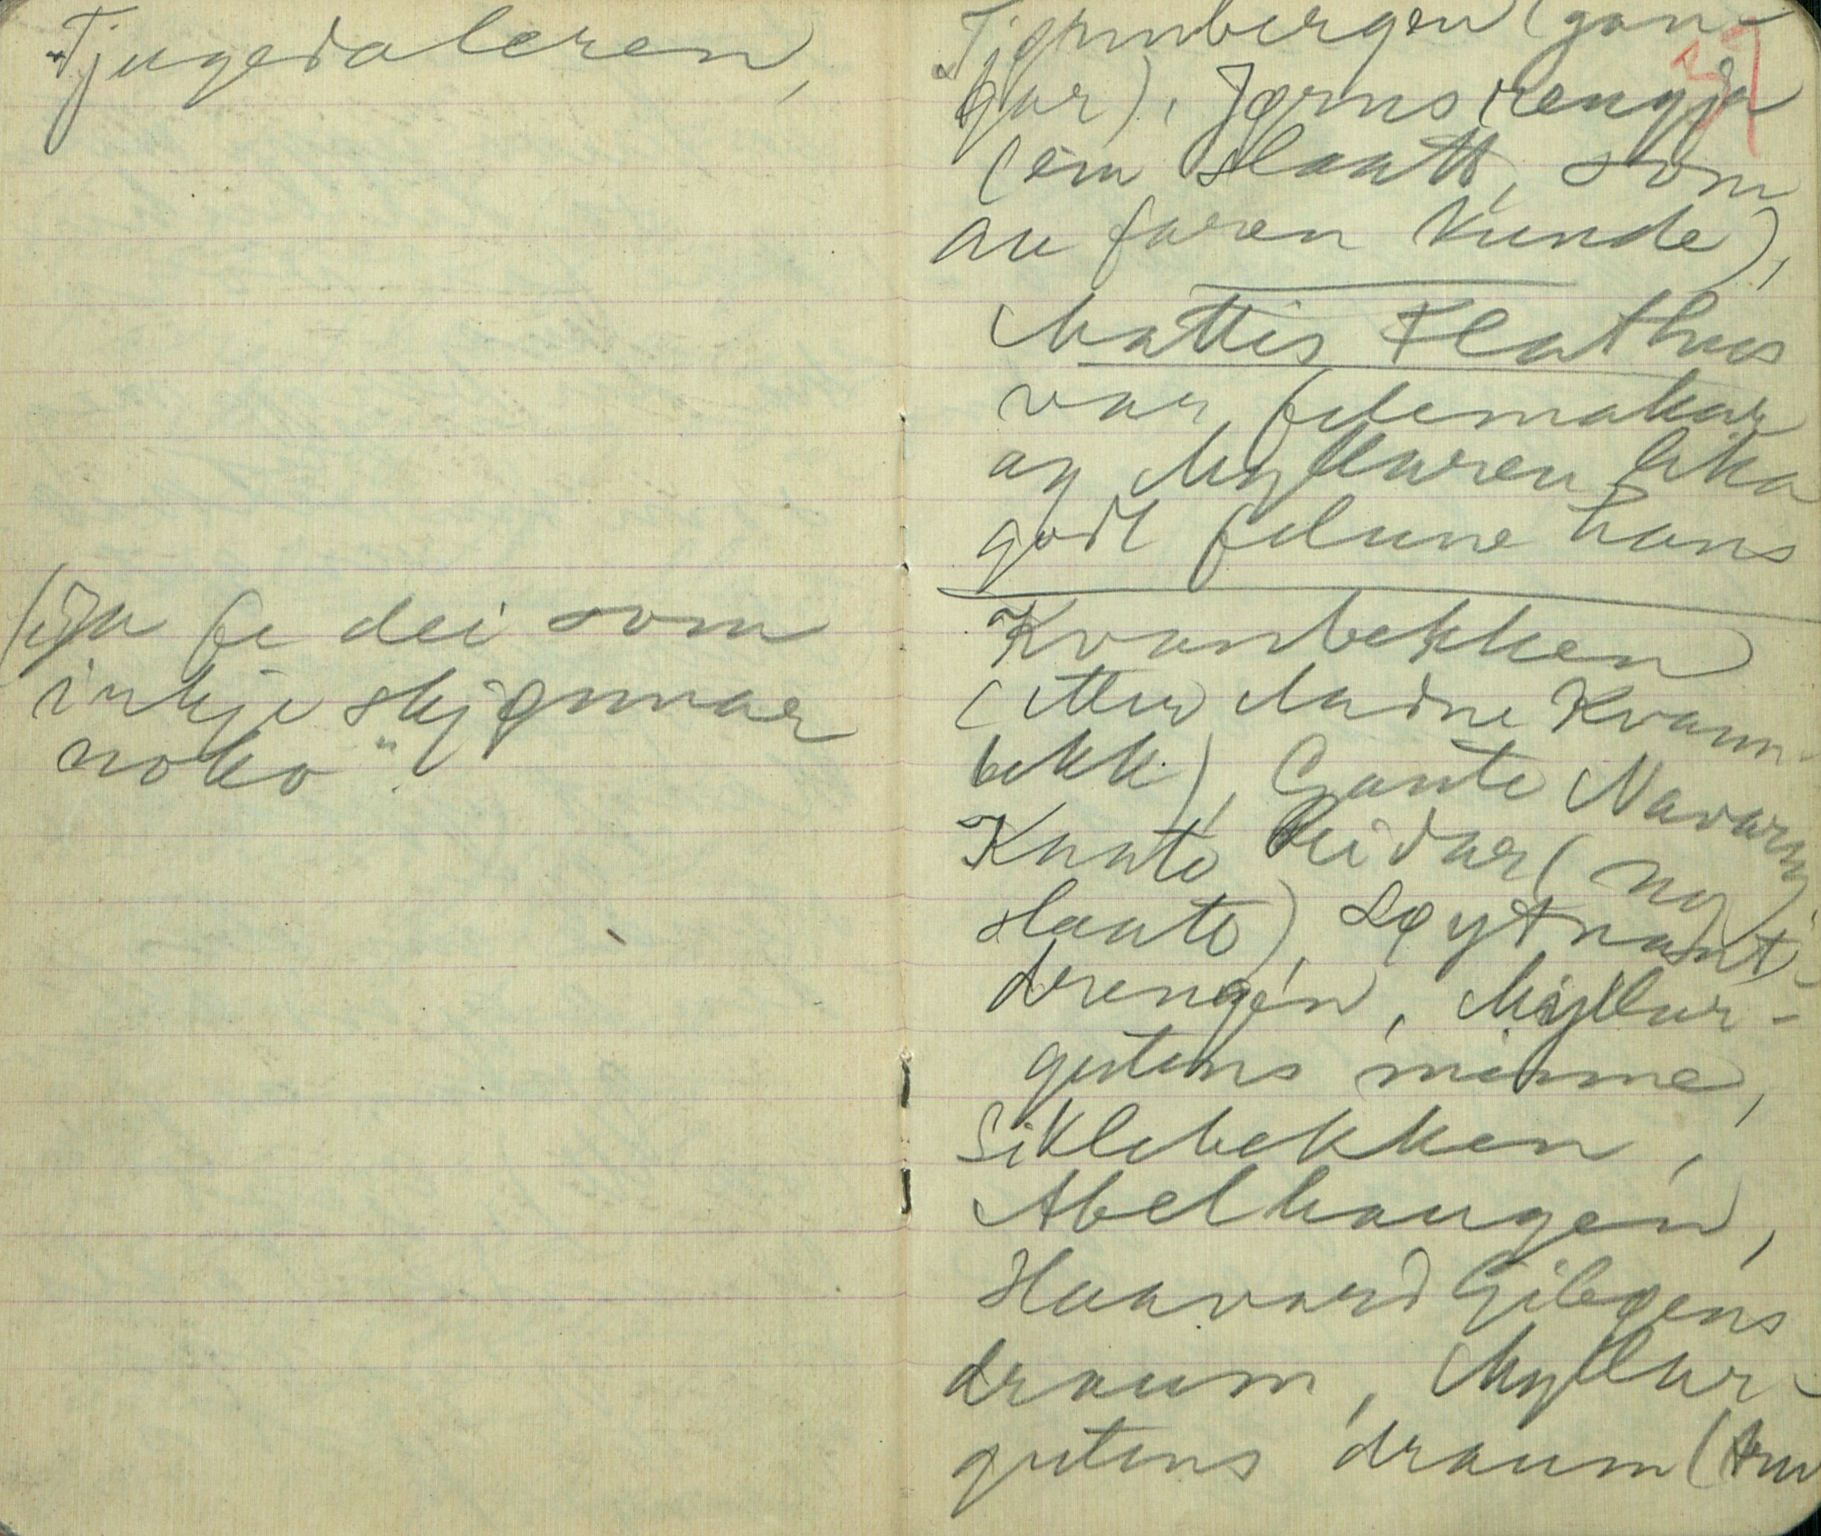 Tjugedaleren,
(ija fe dei som
inkje skjønnar
noko".
Tjønnbergen (gan-
gar), Jørnstrengja
(ein slaatt, som
au faren kunde),
Mattis Flathus
var felemakar
og Myllaren lika
godt felune hans
Kvanbekken
(etter Aadne Kvann-
bekk), Gante Navaren,
Knuto Reidar (ny
slaatt), Løytnant-
drengen, Myllar-
gutens minne,
Siklebekken,
Abelhaugen,
Haavard Gibøens
draum, Myllar-
gutens draum (